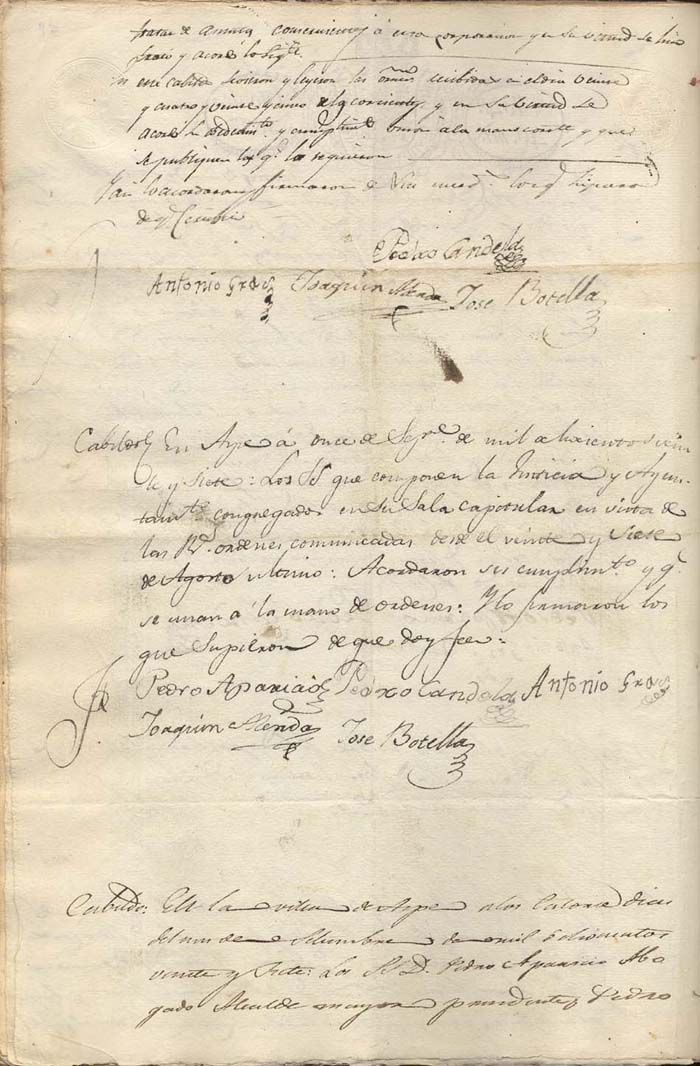 tratar de asuntos concernientes á esta corporacion y en su virtud se hizo
trató y acordó lo sigte.
En este cabildo se vieron y leyeron las ordns recibidas en el dia veinte
y cuatro y veinte y cinco de los corrientes y en su virtud se
acordó su obedecimto y cumplimto unirse á la mano corrte y que
se publiquen las qe lo requieran
Asi lo acordaron y firmaron de sus mercds los qe supieron
de qe Certifico
Pedro Candela
Antonio Gras Joaquin Alenda Jose Botella
Cabildo En Aspe á once de Sepre. de mil ochocientos vein-
te y siete: Los SS que componen la Justicia y Ayun-
tamto congregados en su Sala Capitular en vista de
las Rs ordenes comunicadas desde el veinte y siete
de Agosto ultimo: Acordaron su cumplimto y qe
se unan á la mano de ordenes: Y lo firmaron los
que Supieron de que doy fee=
Pedro Aparicio Pedro Candela Antonio Gras
Joaquin Alenda Jose Botella
Cabildo: En la villa de Aspe a los Catorce dias
del mes de Setiembre de mil ochocientos
veinte y siete: Los S.S. D. Pedro Aparicio Abo
gado Alcalde mayor precidente, Pedro